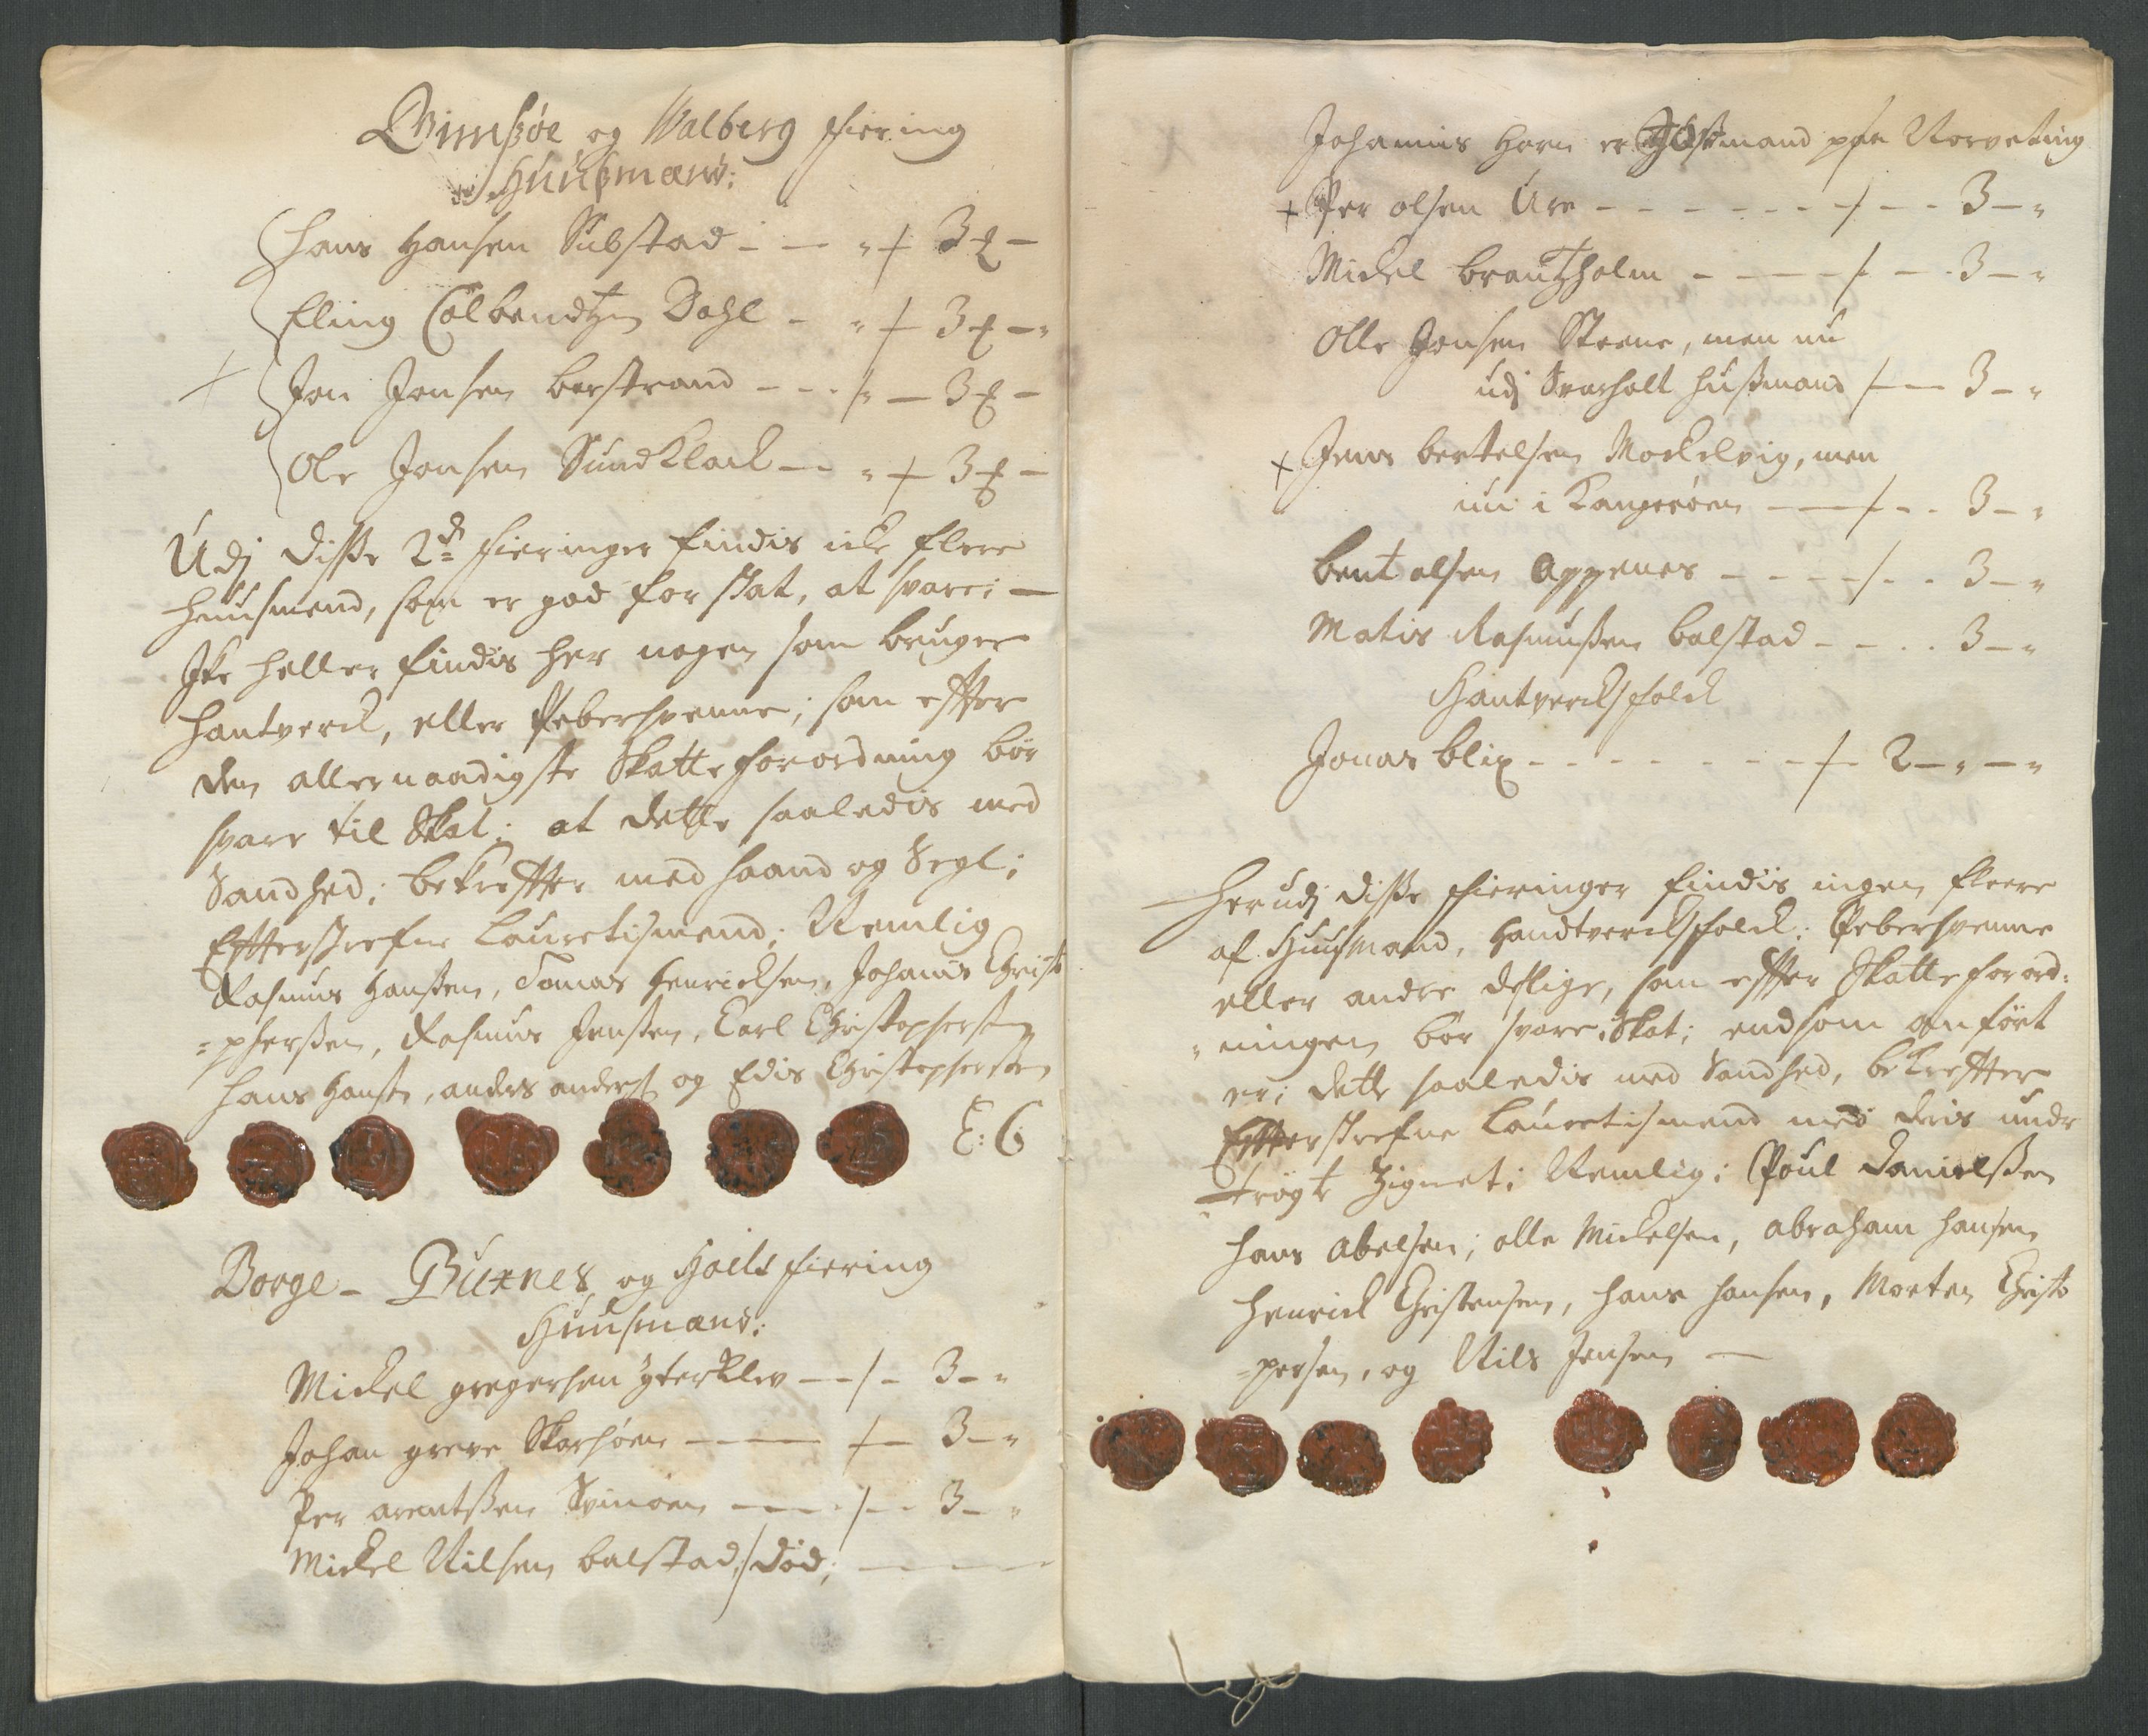 Gimsøe og Walberg fiering
Huusmænd:
Hans Hansen Substad - — " + 3 —
Eling Colbendtzen Dahl - " + 3 — "
Jon Jonsen berstrand - - - — 3 —
Ole Jonsen Sundklack — " + 3 —
Udj disse 2de fieringer findis icke flere
huusmend, som er god for skat, at svare; —
Icke heller findis her nogen som bruger
handtverck, eller Pebersvenne; som effter
den allernaadigste Skatte forordning bör
svare til Skat; at dette saaledis med
Sandhed; bekreffter med haand og Segl;
Effterskrefne Lauretismend; Nemlig
Rasmus Hanssen, Tomas Henricksen, Johanis Christo
=pherssen, Rasmus Jenssen, Carl Christopherssen
Hans Hansen, anders anders og Edis Christophersen
E: G
Borge - Buxnes og Hoels fiering
Huusmænd:
Mickel gregersen ytterklev — - 3 - "
Johan greve Skarsöen — — 3 - "
Per arentssen Svinöen — - 3 - "
Mickel Nilsen balstad / död; — —
Johannis Horn er Postmand paa Norveting
+ Per olsen Ure - - - - - 3 - "
Mickel brantzholm - — - 3 - "
Olle Jonsen Steene, men nu
udj Svarholt husmand — 3 - "
+ Jens bertelsen Mockelvig, men
nu i Kangeröen — - - 3 - "
bent olsen Oppenes - - - - 3 - "
Matis Rasmussen balstad - - - 3 - "
Handtvercksfolck
Jonas blix - - - - - - 2 - " - "
Her udj disse fieringer findis ingen fleere
af Huusmand, Handtvercksfolck; Pebersvenne
eller andre deslige, som effter Skatte forord:
" ningen bör svare Skat; end som anfört
er; dette saaledis med Sandhed, bekreffter
Effterskrefne Lauretismend med deris undr
tryckte Zignet; Nemlig; Poul Danielssen
Hans Abelsen; olle Mickelsen, abraham Hansen
Henrick Christensen, Hans Hansen, Morten Christo
=persen, og Nils Jensen —